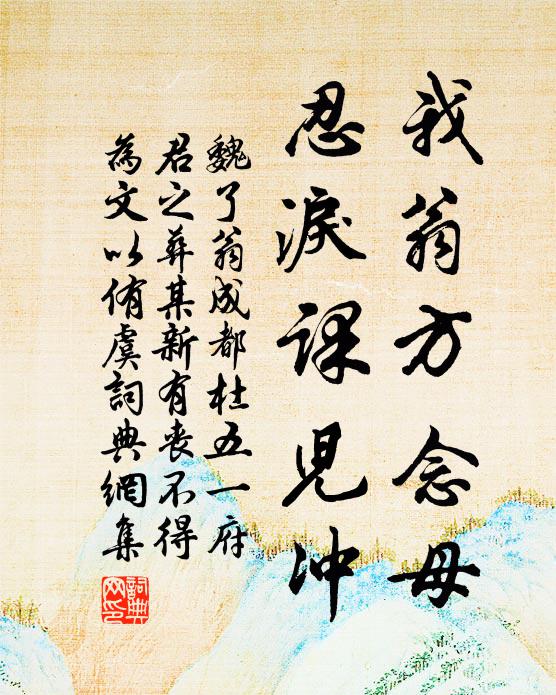 我翁方念母
忍淚課兒沖
魏了翁成都杜五一府
君之葬某新有丧不得
為文以侑虞詞典網集
詞典网印